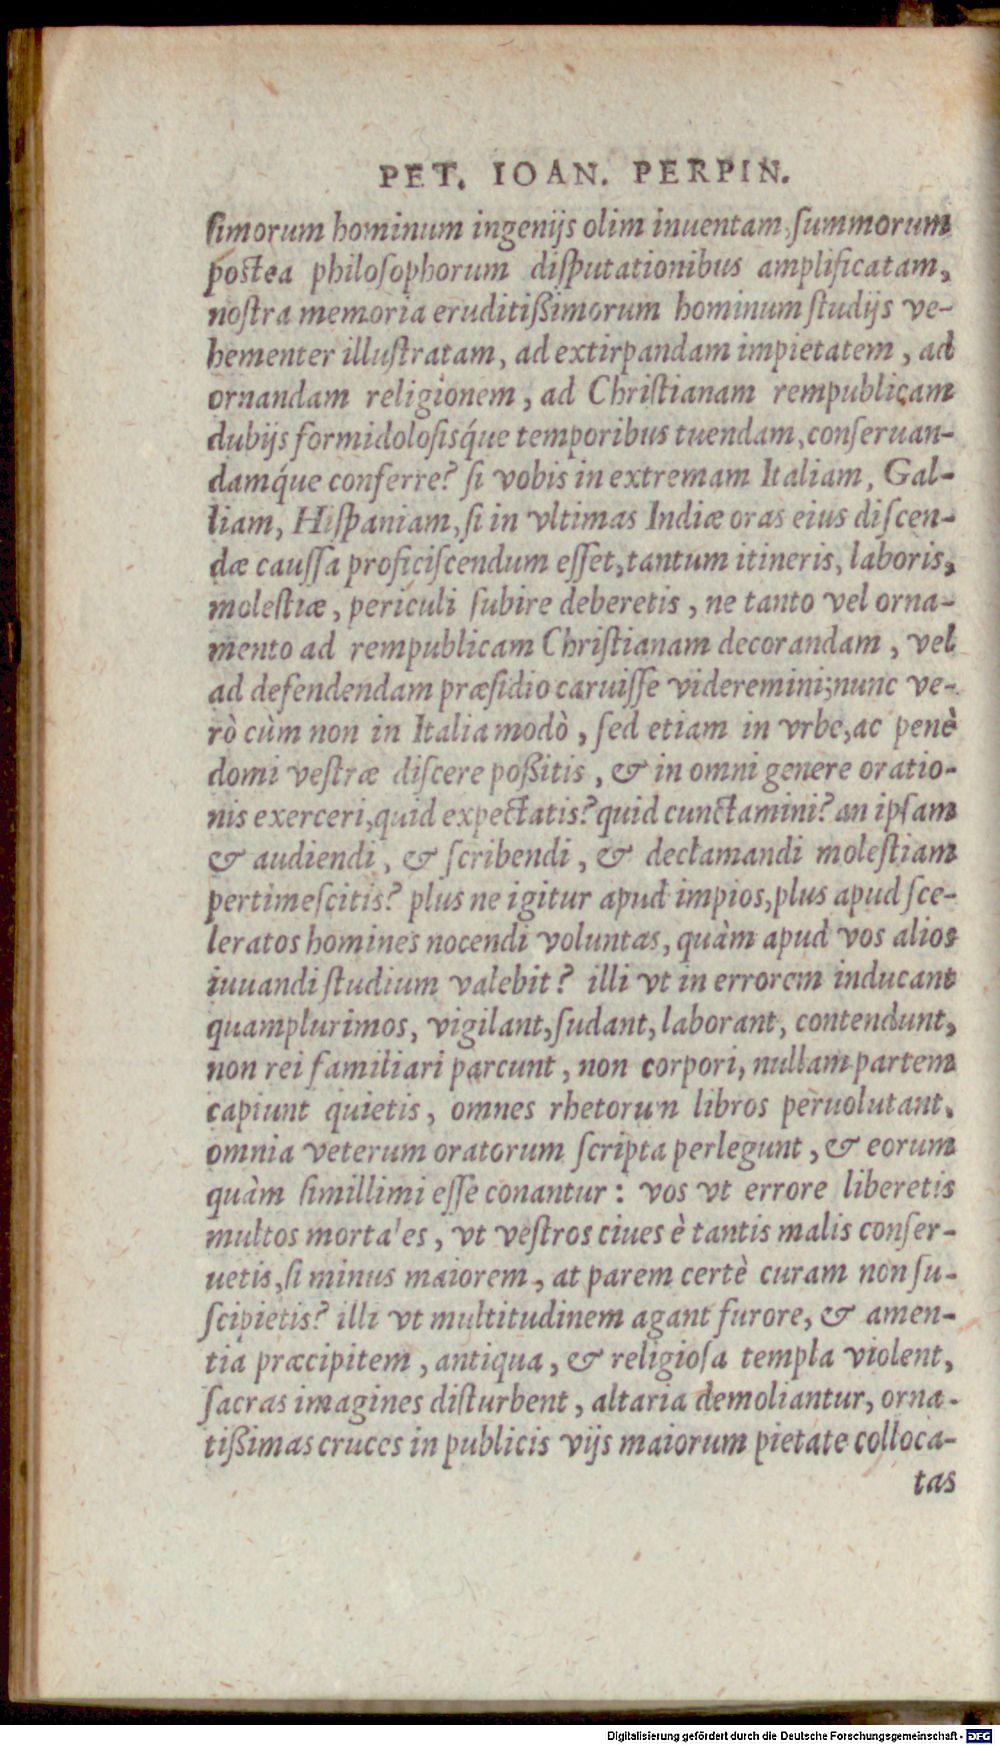 PET. IOAN. PERPIN.
ſimorum hominum ingenijs olim inuentam, ſummorum
poſtea philoſophorum diſputationibus amplificatam,
noſtra memoria eruditißimorum hominum ſtudijs ve-
hementer illuſtratam, ad extirpandam impietatem, ad
ornandam religionem, ad Chriſtianam rempublicam
dubijs formidoloſisq́ue temporibus tuendam, conſeruan-
damq́ue conferre? ſi vobis in extremam Italiam, Gal-
liam, Hiſpaniam, ſi in vltimas Indiæ oras eius diſcen-
dæ cauſſa proficiſcendum eſſet, tantum itineris, laboris,
moleſtiæ, periculi ſubire deberetis, ne tanto vel orna-
mento ad rempublicam Chriſtianam decorandam, vel
ad defendendam præſidio caruiſſe videremini; nunc ve-
rò cùm non in Italia modò, ſed etiam in vrbe, ac penè
domi veſtræ diſcere poßitis, & in omni genere oratio-
nis exerceri, quid expectatis? quid cunctamini? an ipſam
& audiendi, & ſcribendi, & declamandi moleſtiam
pertimeſcitis? plus ne igitur apud impios, plus apud ſce-
leratos homines nocendi voluntas, quàm apud vos alios
iuuandi ſtudium valebit? illi vt in errorem inducant
quamplurimos, vigilant, ſudant, laborant, contendunt,
non rei familiari parcunt, non corpori, nullam partem
capiunt quietis, omnes rhetorum libros peruolutant,
omnia veterum oratorum ſcripta perlegunt, & eorum
quàm ſimillimi eſſe conantur: vos vt errore liberetis
multos mortales, vt veſtros ciues è tantis malis conſer-
uetis, ſi minus maiorem, at parem certè curam non ſu-
ſcipietis? illi vt multitudinem agant furore, & amen-
tia præcipitem, antiqua, & religioſa templa violent,
ſacras imagines diſturbent, altaria demoliantur, orna-
tißimas cruces in publicis vijs maiorum pietate colloca-
tas
Digitalisierung gefördert durch die Deutsche Forschungsgemeinschaft - DFG